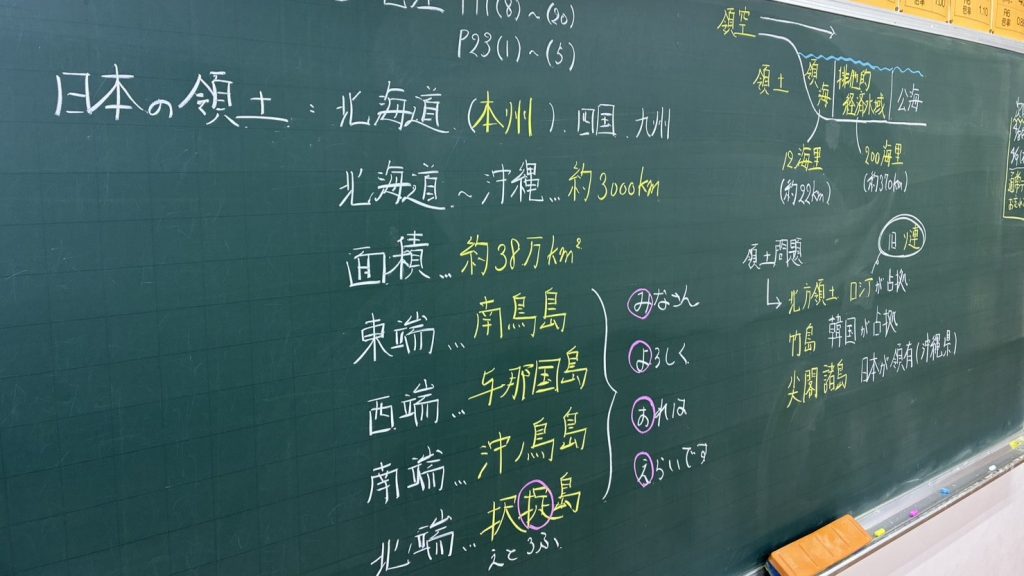 P23(1)～(5)
日本の領土：北海道(本州)四国 九州
北海道～沖縄…約3000km
面積…約38万km²
東端…南鳥島
西端…与那国島
南端…沖ノ鳥島
北端…択捉島
えとろふ
みなさん
よろしく
おれは
えらいです
領空
領土
領海
排他的
経済水域
公海
12海里
(約22km)
200海里
(約370km)
領土問題
旧ソ連
北方領土 ロシアが占拠
竹島 韓国が占拠
尖閣諸島 日本が領有(沖縄県)